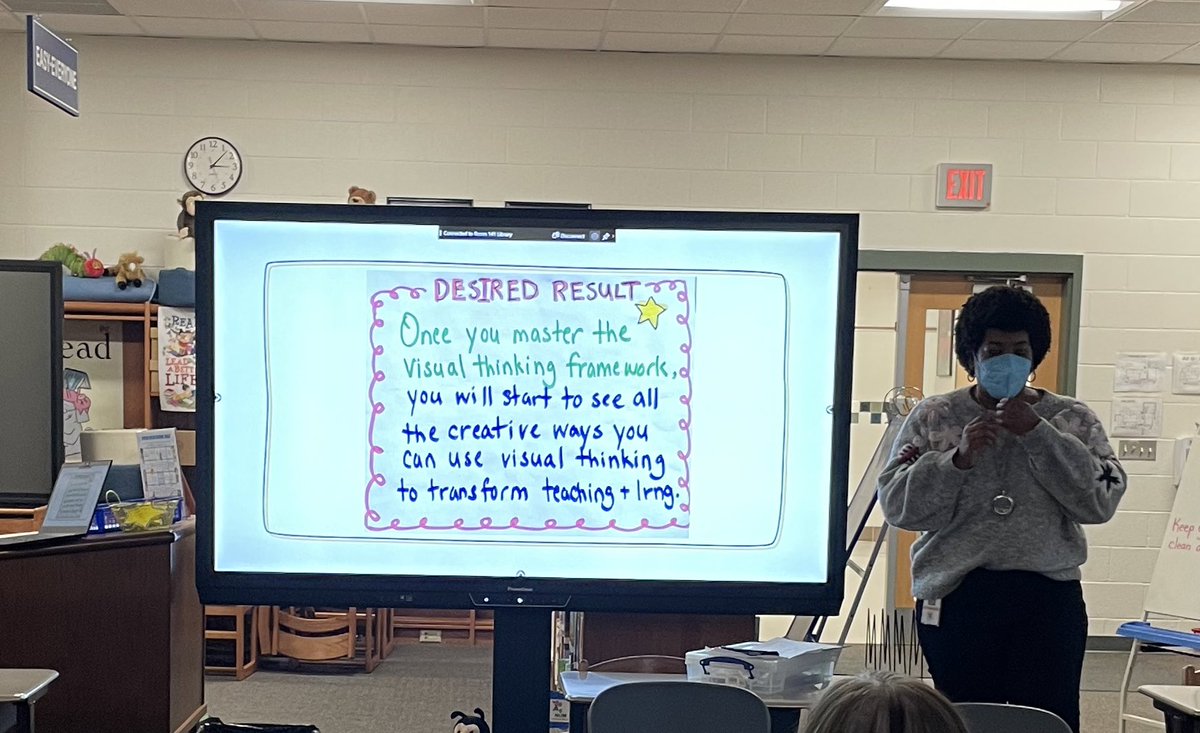 EASY-EVERYONE
12
EXIT
Connected to Room 141 Library
Disconnect
DESIRED RESULT
Once you master the
visual thinking framework,
you will start to see all
the creative ways you
can use visual thinking
to transform teaching + lrng.
READ
LEAD
LIFE
ead
Keep
clean
Promethean